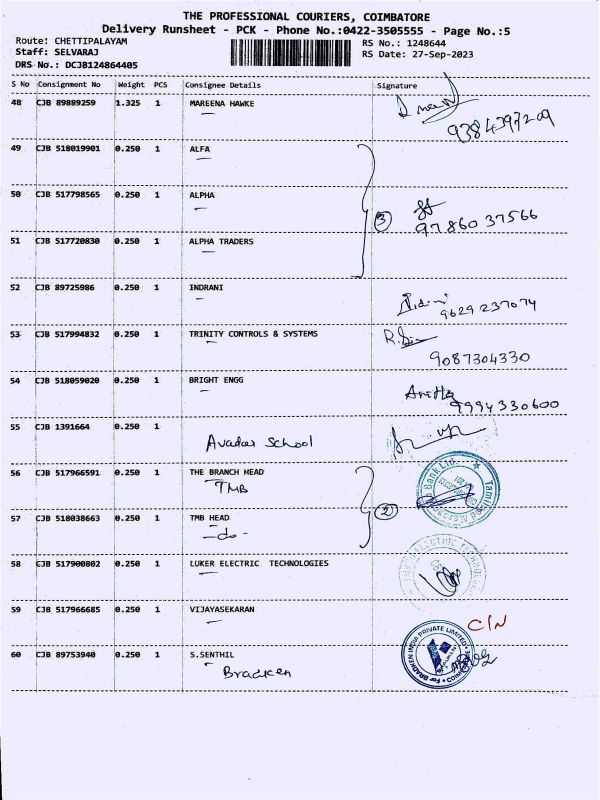 THE PROFESSIONAL COURIERS, COIMBATORE
Delivery Runsheet - PCK - Phone No.:0422-3505555 - Page No.:5
Route: CHETTIPALAYAM RS No.: 1248644
Staff: SELVARAJ RS Date: 27-Sep-2023
DRS No.: DCJB124864405
S No Consignment No Weight PCS Consignee Details Signature
48 CJB 89889259 1.325 1 MAREENA HAWKE
9384397209
49 CJB 518019901 0.250 1 ALFA
50 CJB 517798565 0.250 1 ALPHA
3 97860 37566
51 CJB 517720830 0.250 1 ALPHA TRADERS
52 CJB 89725986 0.250 1 INDRANI
9629237074
53 CJB 517994832 0.250 1 TRINITY CONTROLS & SYSTEMS
9087304330
54 CJB 518059020 0.250 1 BRIGHT ENGG
9994330600
55 CJB 1391664 0.250 1
Avadar School
56 CJB 517966591 0.250 1 THE BRANCH HEAD
TMB
57 CJB 518038663 0.250 1 TMB HEAD
2
-do-
58 CJB 517900802 0.250 1 LUKER ELECTRIC TECHNOLOGIES
59 CJB 517966685 0.250 1 VIJAYASEKARAN
C/N
60 CJB 89753940 0.250 1 S.SENTHIL
Bracken
For BRADKEN INDIA PRIVATE LIMITED